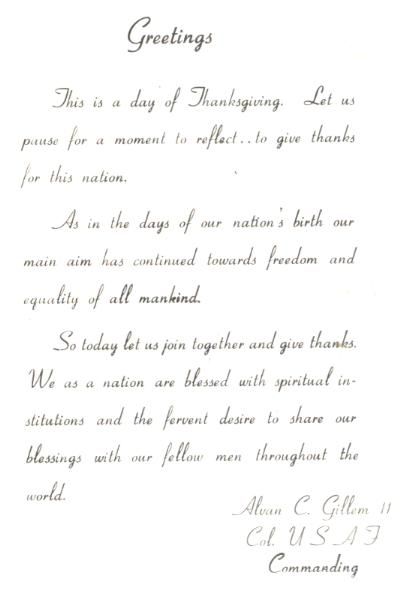 Greetings
This is a day of Thanksgiving. Let us
pause for a moment to reflect..to give thanks
for this nation.
As in the days of our nation's birth our
main aim has continued towards freedom and
equality of all mankind.
So today let us join together and give thanks.
We as a nation are blessed with spiritual in-
stitutions and the fervent desire to share our
blessings with our fellow men throughout the
world.
Alvan C. Gillem II
Col. U S A F
Commanding